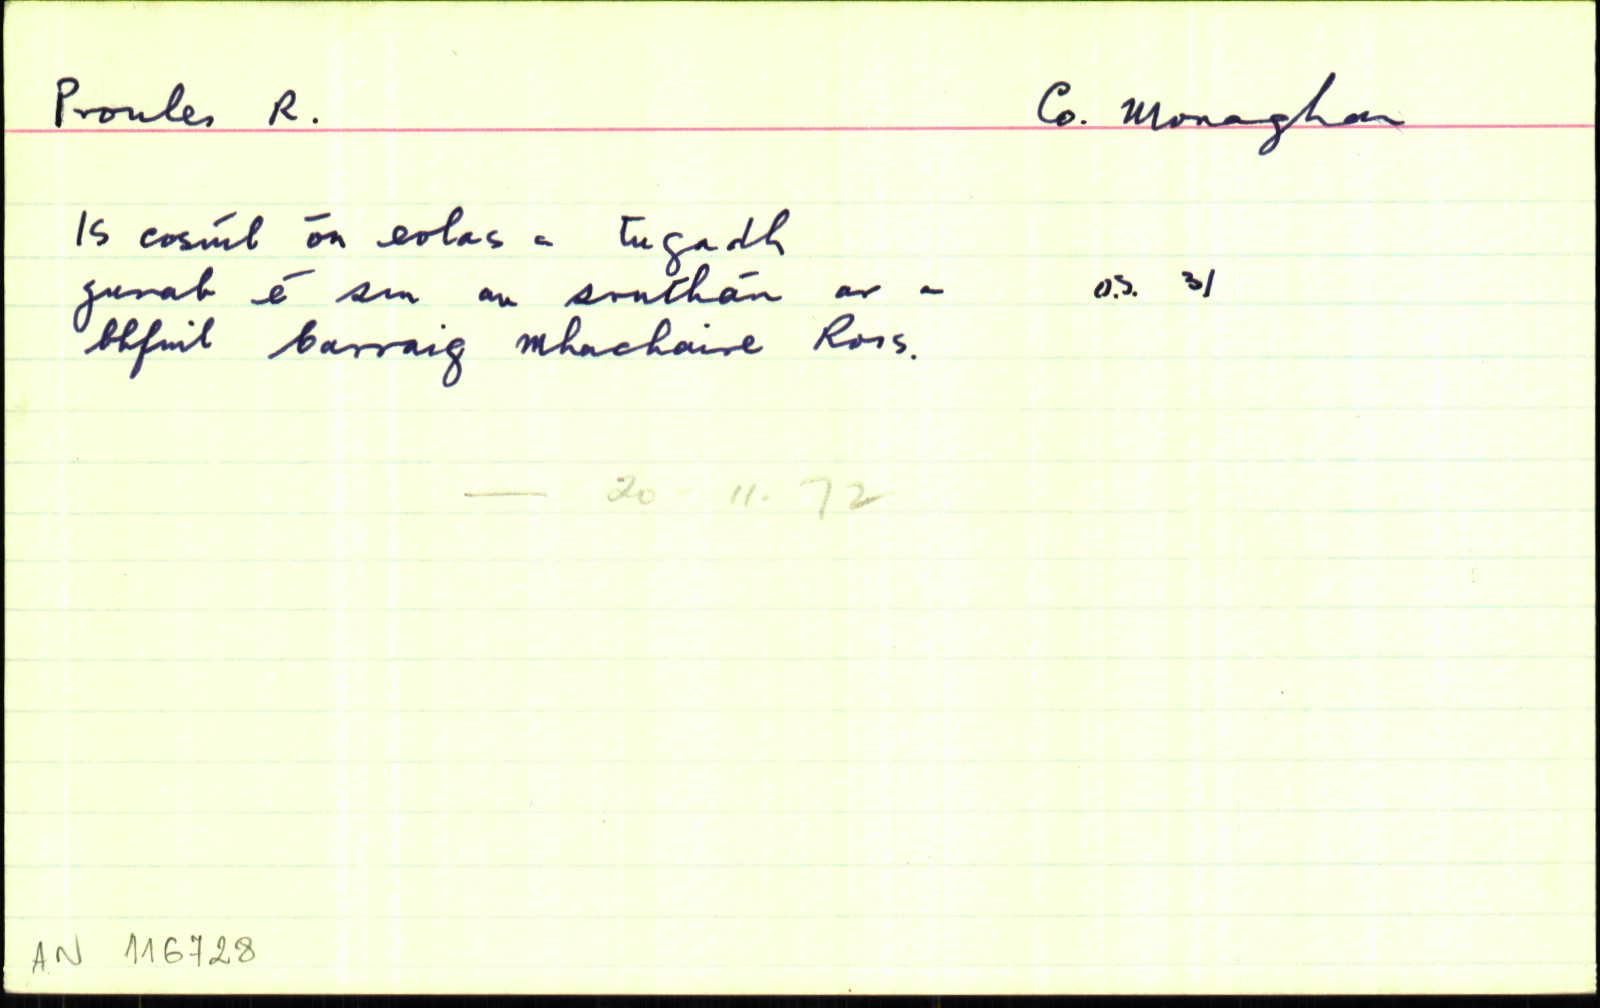 Proules R. Co. Monaghan
Is cosúil ón eolas a tugadh
gurab é sin an sruthán ar a O.S. 31
bhfuil Carraig Mhachaire Rois.
— 20 - 11. 72
AN 116728